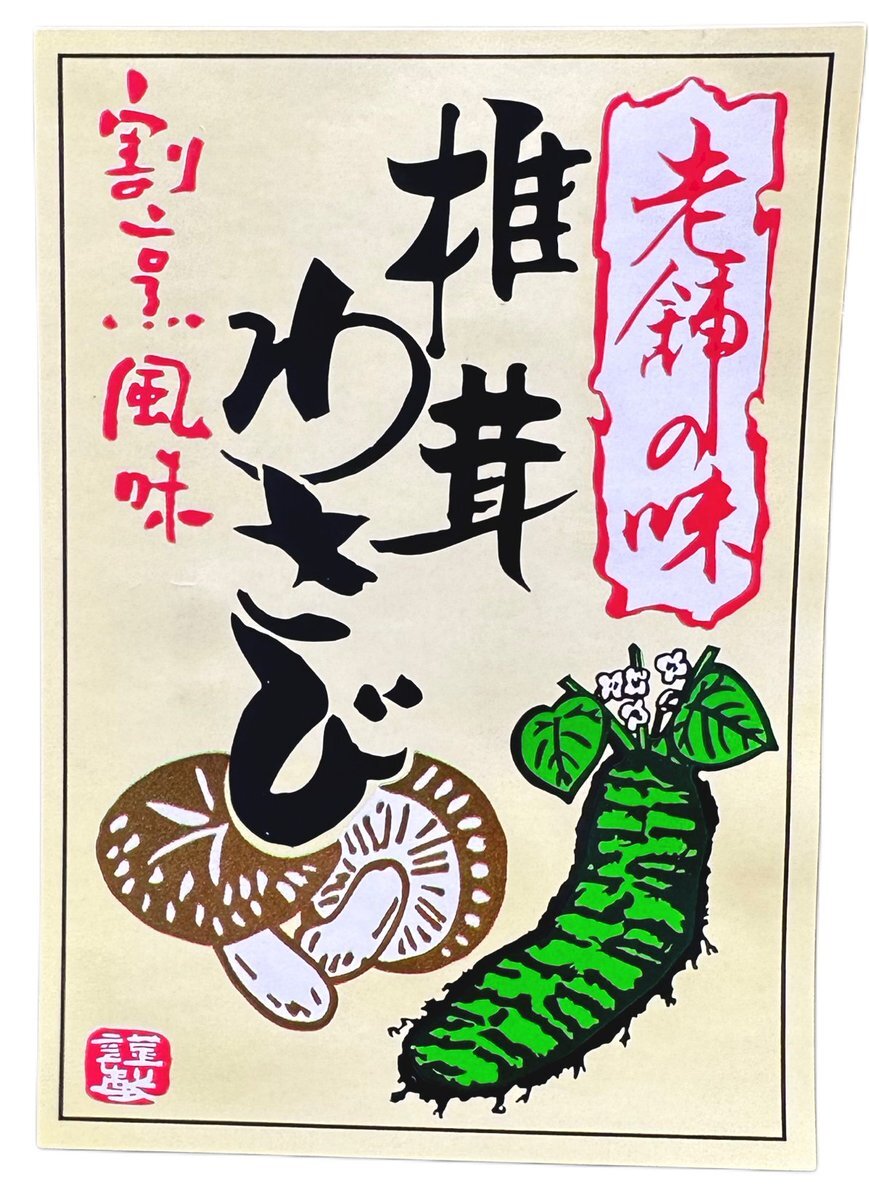 老舗の味
椎茸
わさび
割烹風味
謹製